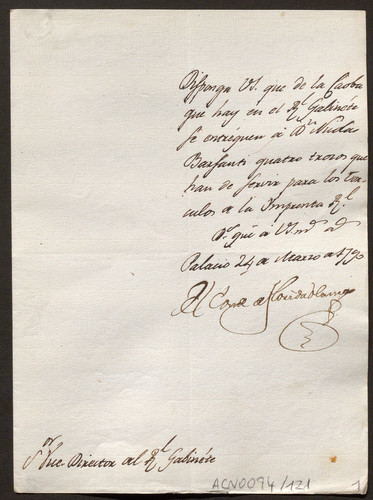 Disponga VS. que de la Caoba
que hay en el Rl. Gabinéte
se entréguen á Dn. Nicolas
Barsanti quatro trozos que
han de servir para los tor-
culos de la Imprenta Rl.
Ds. gue. á VS. ms. as.
Palacio 24 de Marzo de 1790
El Conde de Floridablanca
Sor. Vice-Director del Rl. Gabinéte
ACN0094/121
1